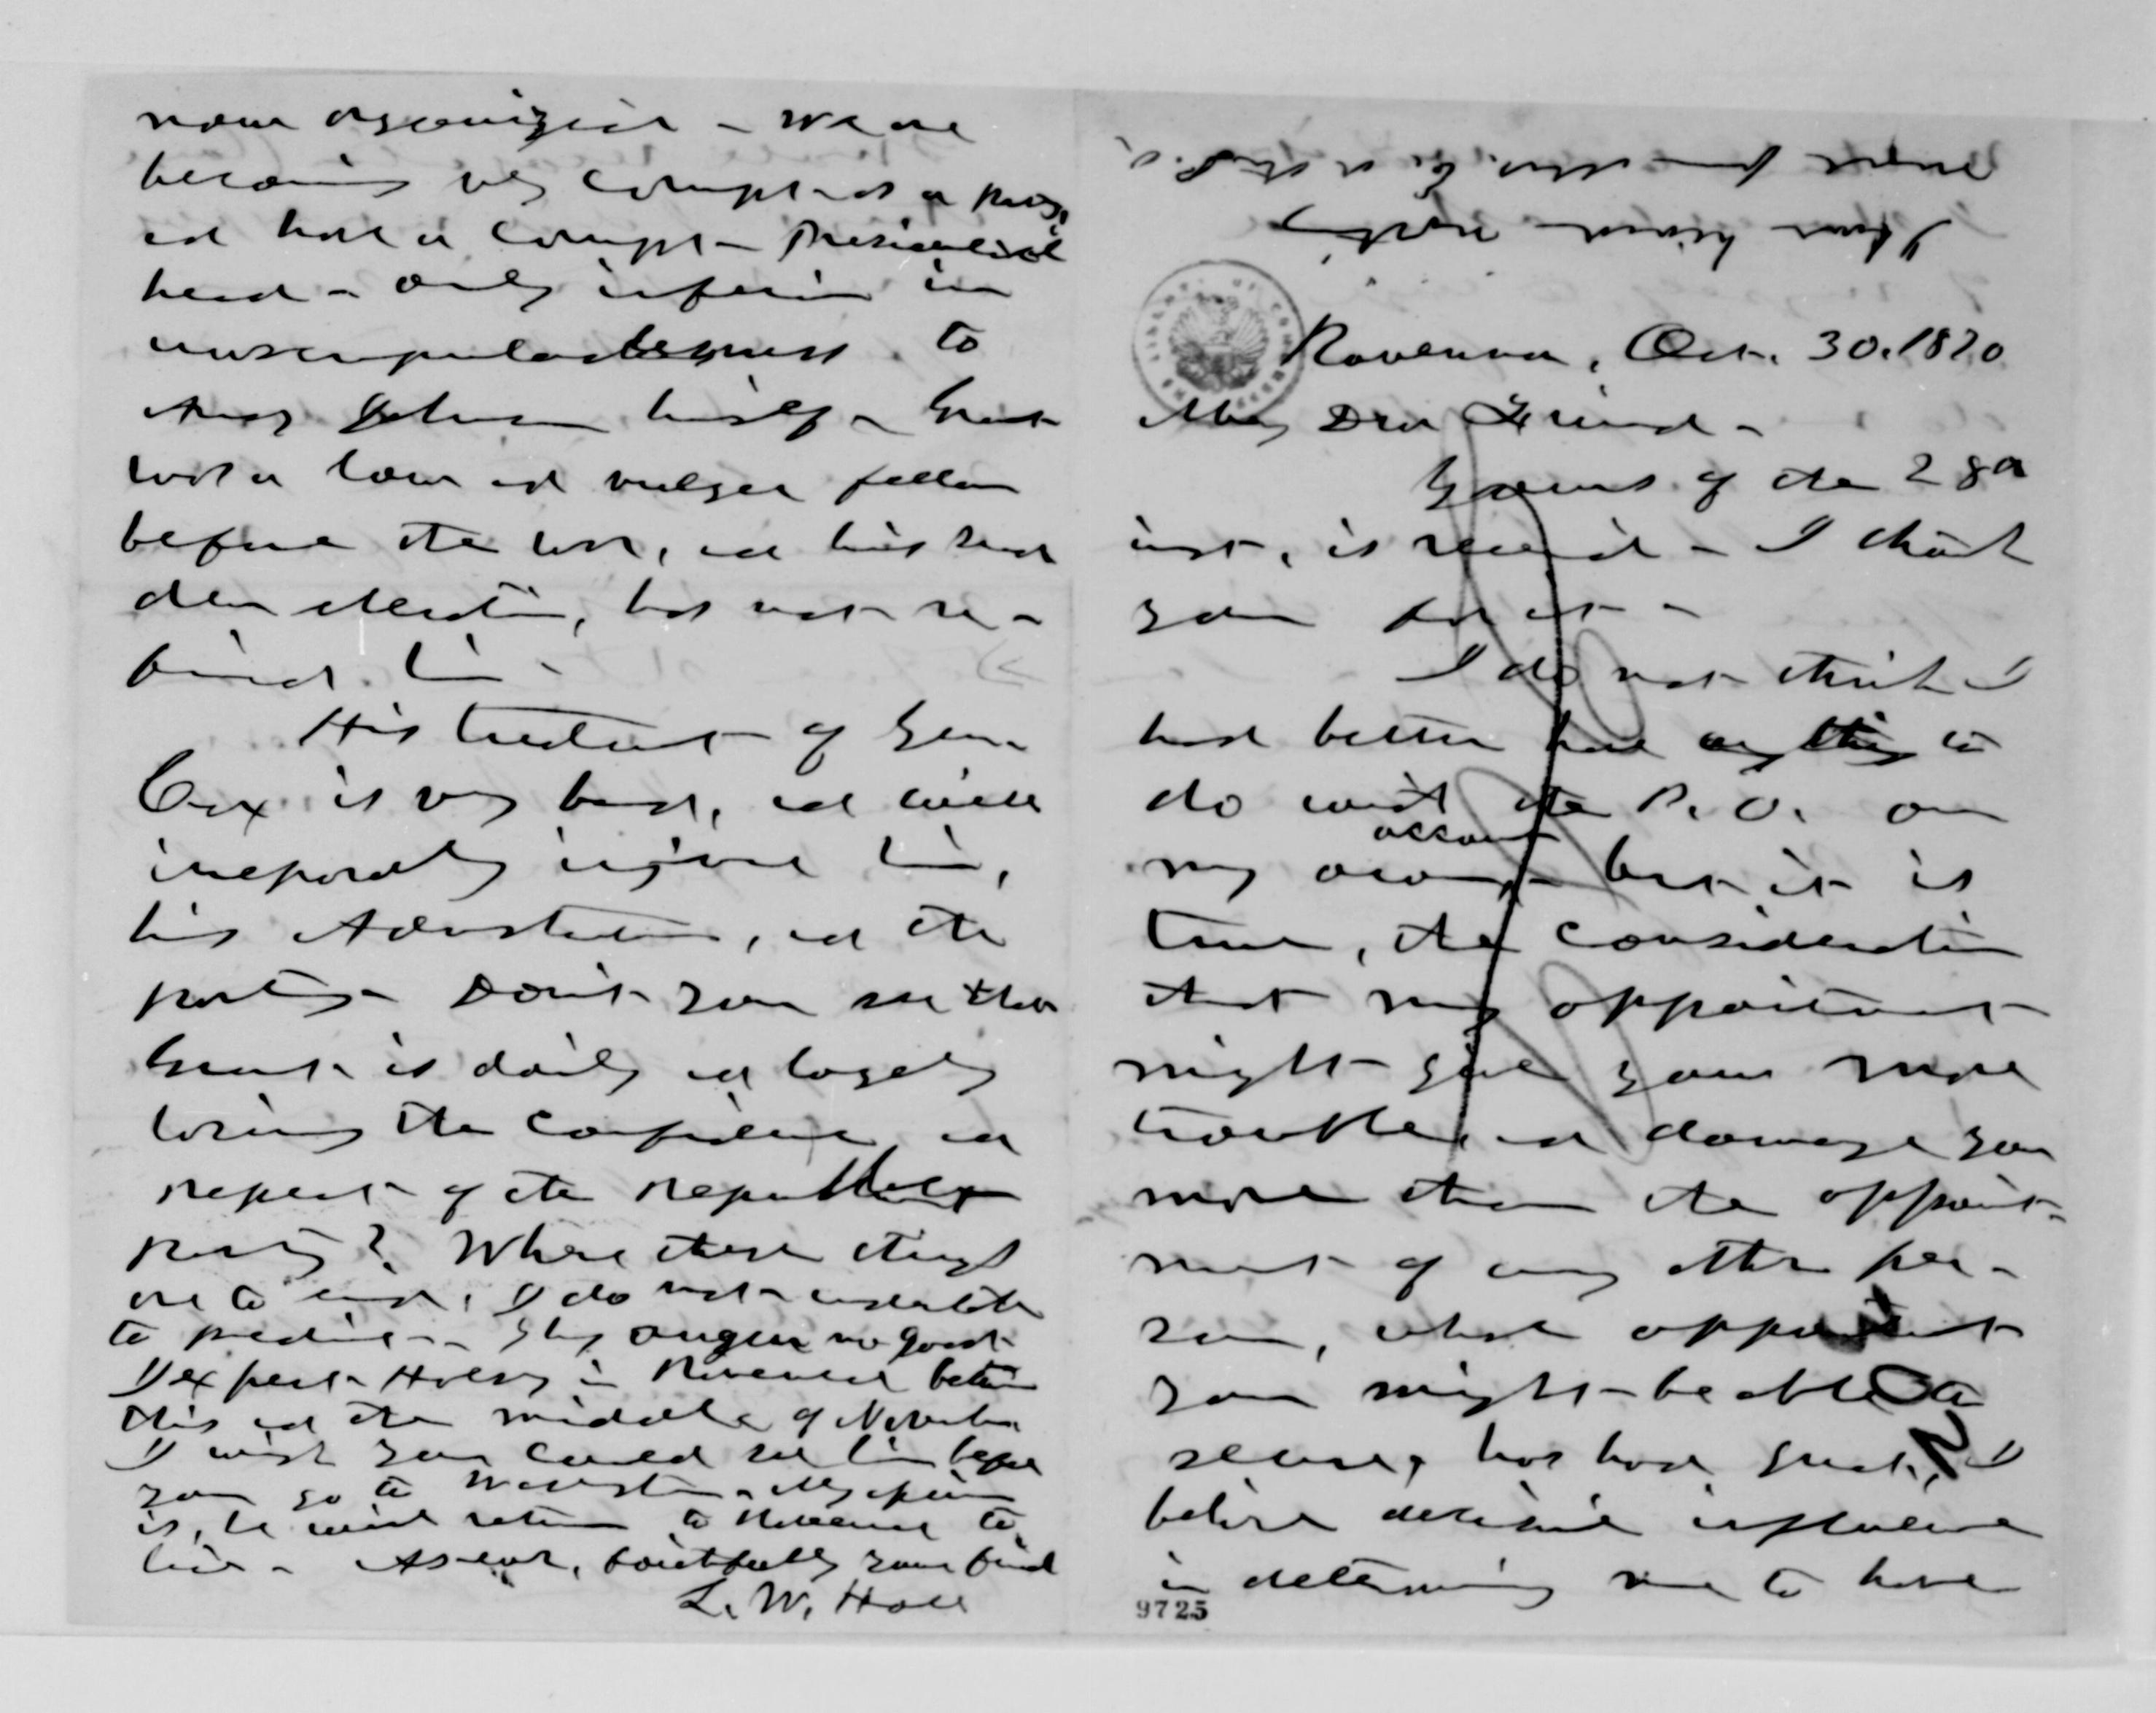 Ravenna, Oct. 30. 1870
My Dear Friend -
Yours of the 28th
inst, is received - I thank
you for it -
I do not think I
had better have any thing to
do with the P. O. on
account
my account but it is
true, the consideration
that my appointment
might give you more
trouble, and damage you
more than the appoint-
ment of any other per-
son, whose appointment
you might be able to
secure, has had great, I
believe decisive influence
in determining me to have
9725
I have heard nothing
more from Mrs.
now organized - We are
becoming very corrupt as a party,
and have a corrupt Presidential
head - only inferior in
unscrupulousness to
Andy Johnson himself - Grant
was a low and vulgar fellow
before the war, and his sud
den elevation, has not re-
fined him -
His treatment of Gen.
Cox is very bad, and will
irreparably injure him,
his Administration, and the
party - Don't you see that
Grant is daily and largely
losing the confidence and
respect of the republican
party? Where these things
are to end, I do not undertake
to predict - They augur no good
I expect Halsey in Ravenna between
this and the middle of November
I wish you could see him before
you go to Washington - My opinion
is, he will return to Ravenna to
live - As ever, faithfully your friend
L. W. Hall